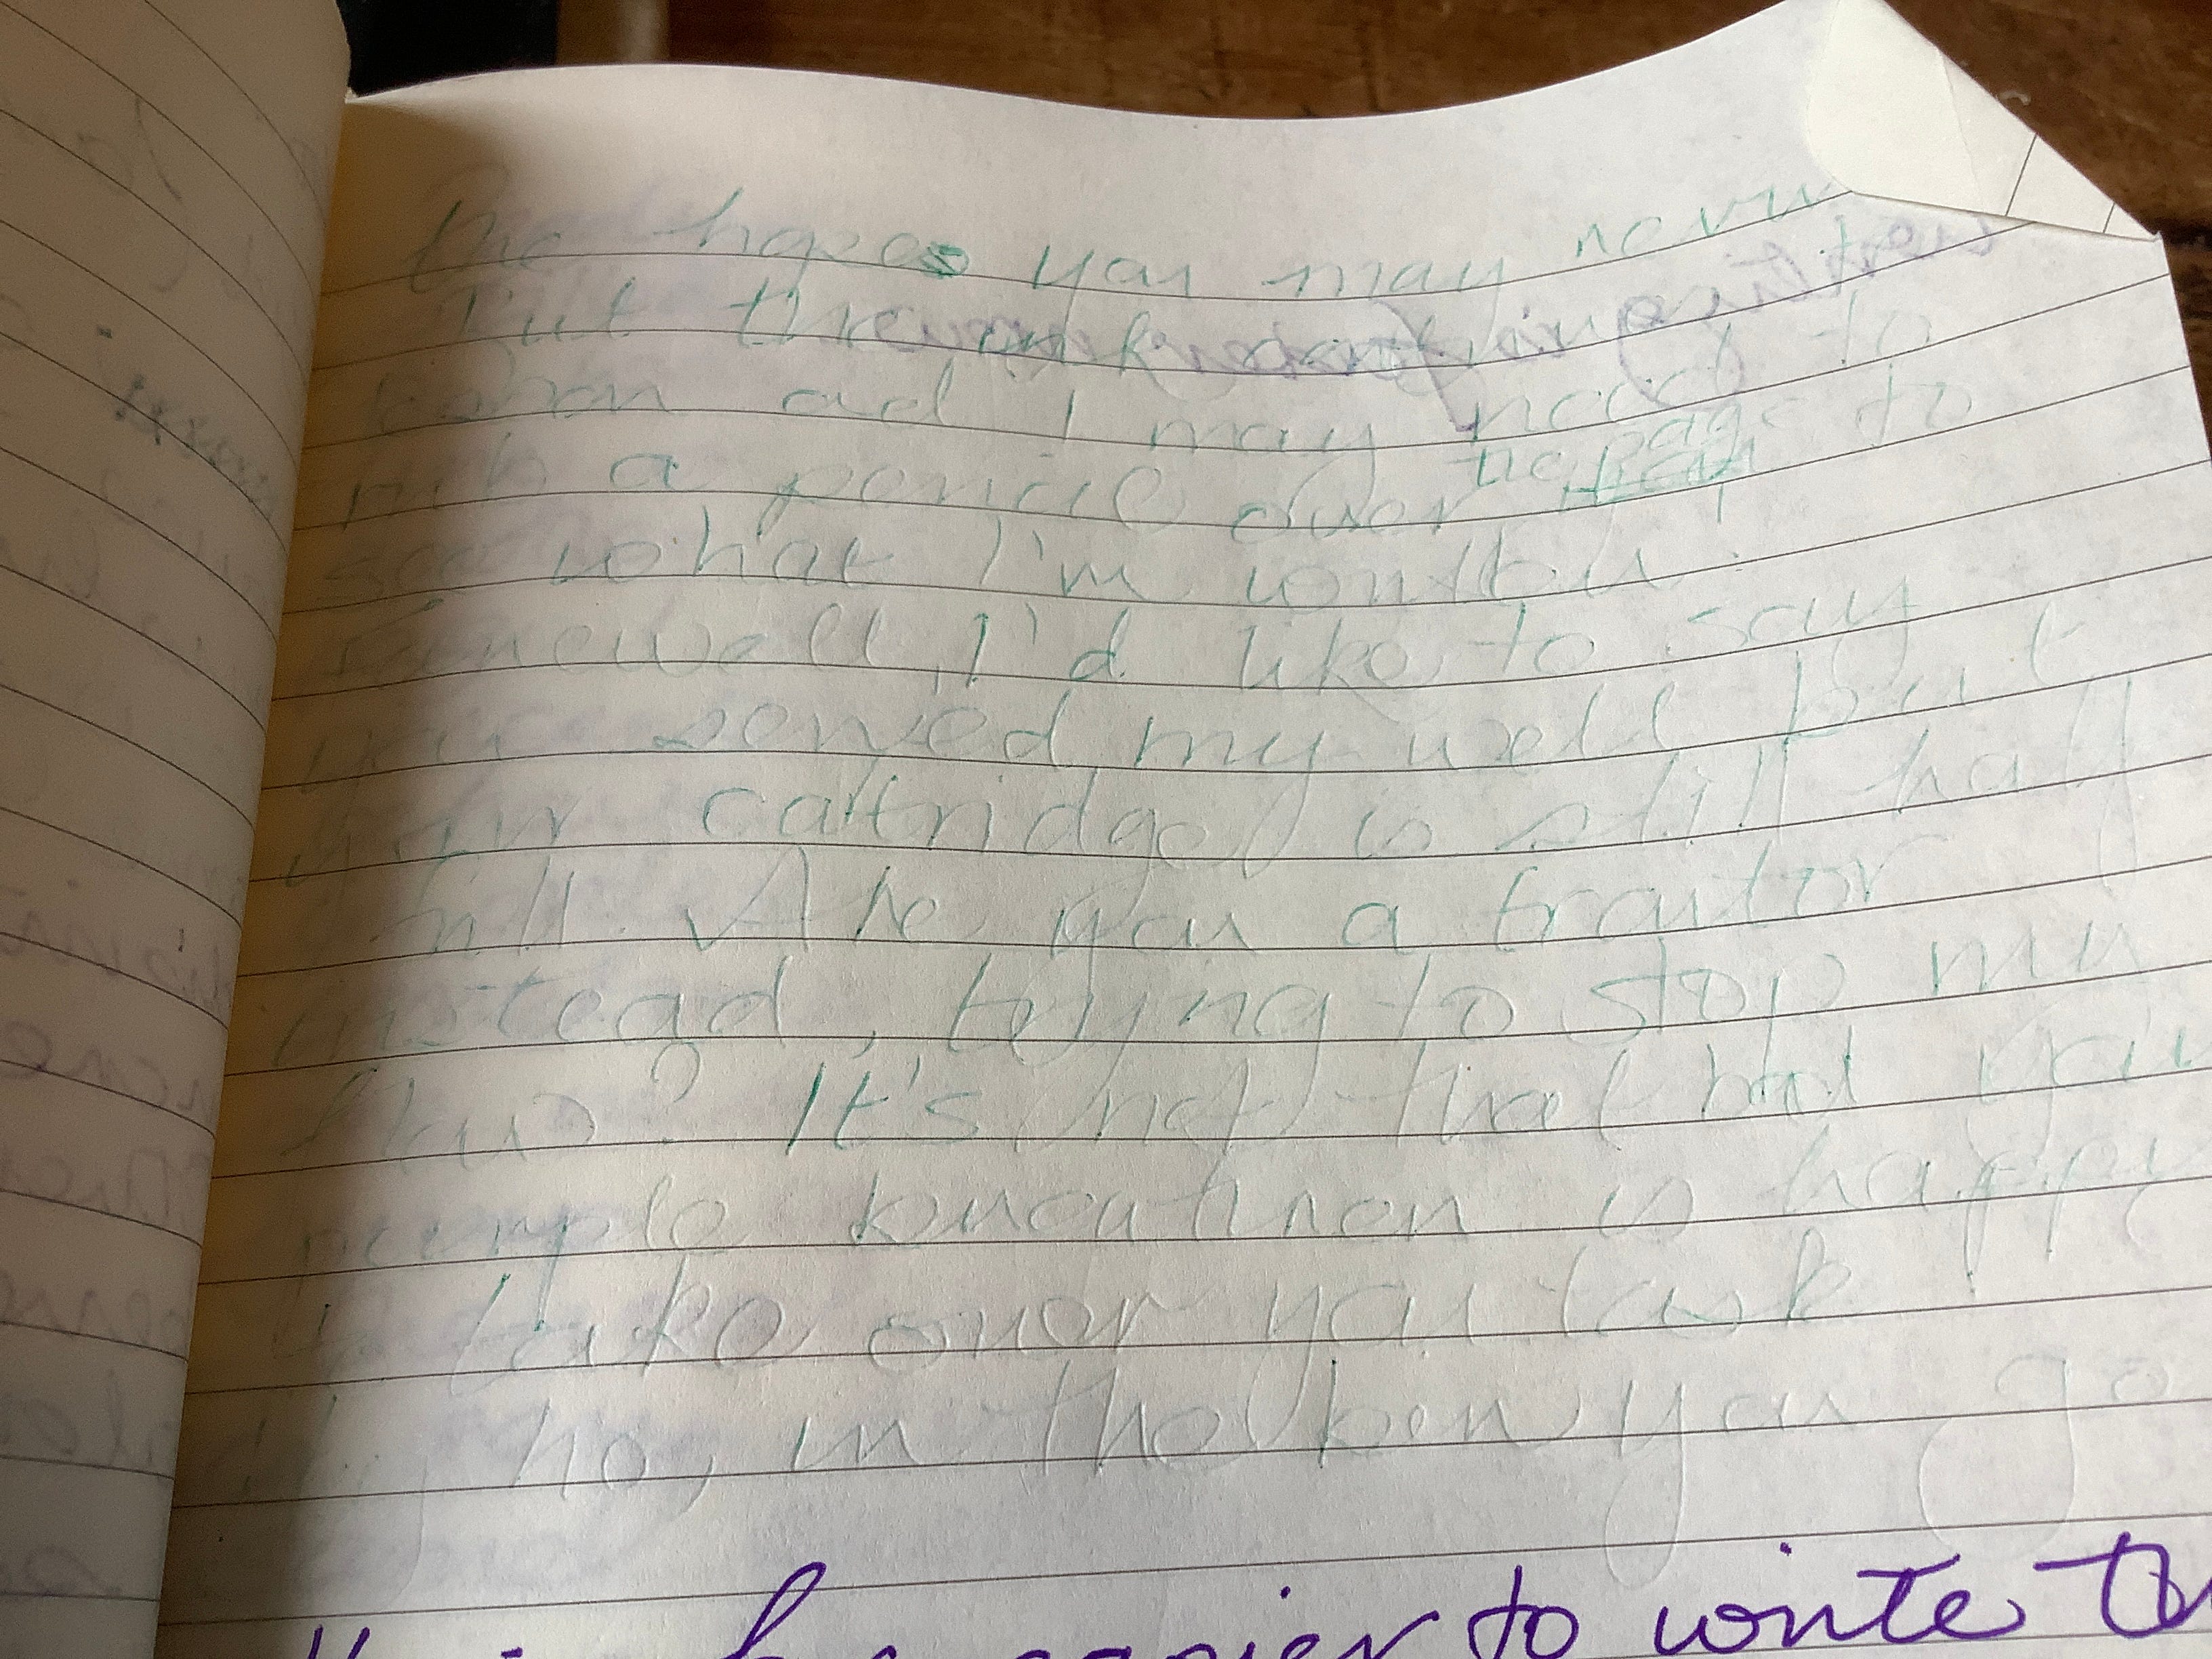 the hopes you may never
But the ink isn't
own and I may need to
rub a pencil over the page to
see what I'm writing.
Farewell, I'd like to say
you served my well but
your cartridge is still half
full. Are you a traitor
instead, trying to stop my
flaw? It's not that bad your
purple brethren is happy
to take over you task
if no, in the bin you go
easier to write